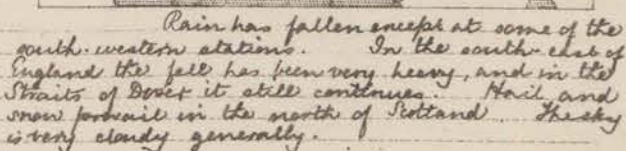 Rain has fallen except at some of the
south-western stations. In the south-east of
England the fall has been very heavy, and in the
Straits of Dover it still continues. Hail and
snow prevail in the north of Scotland. The sky
is very cloudy generally.